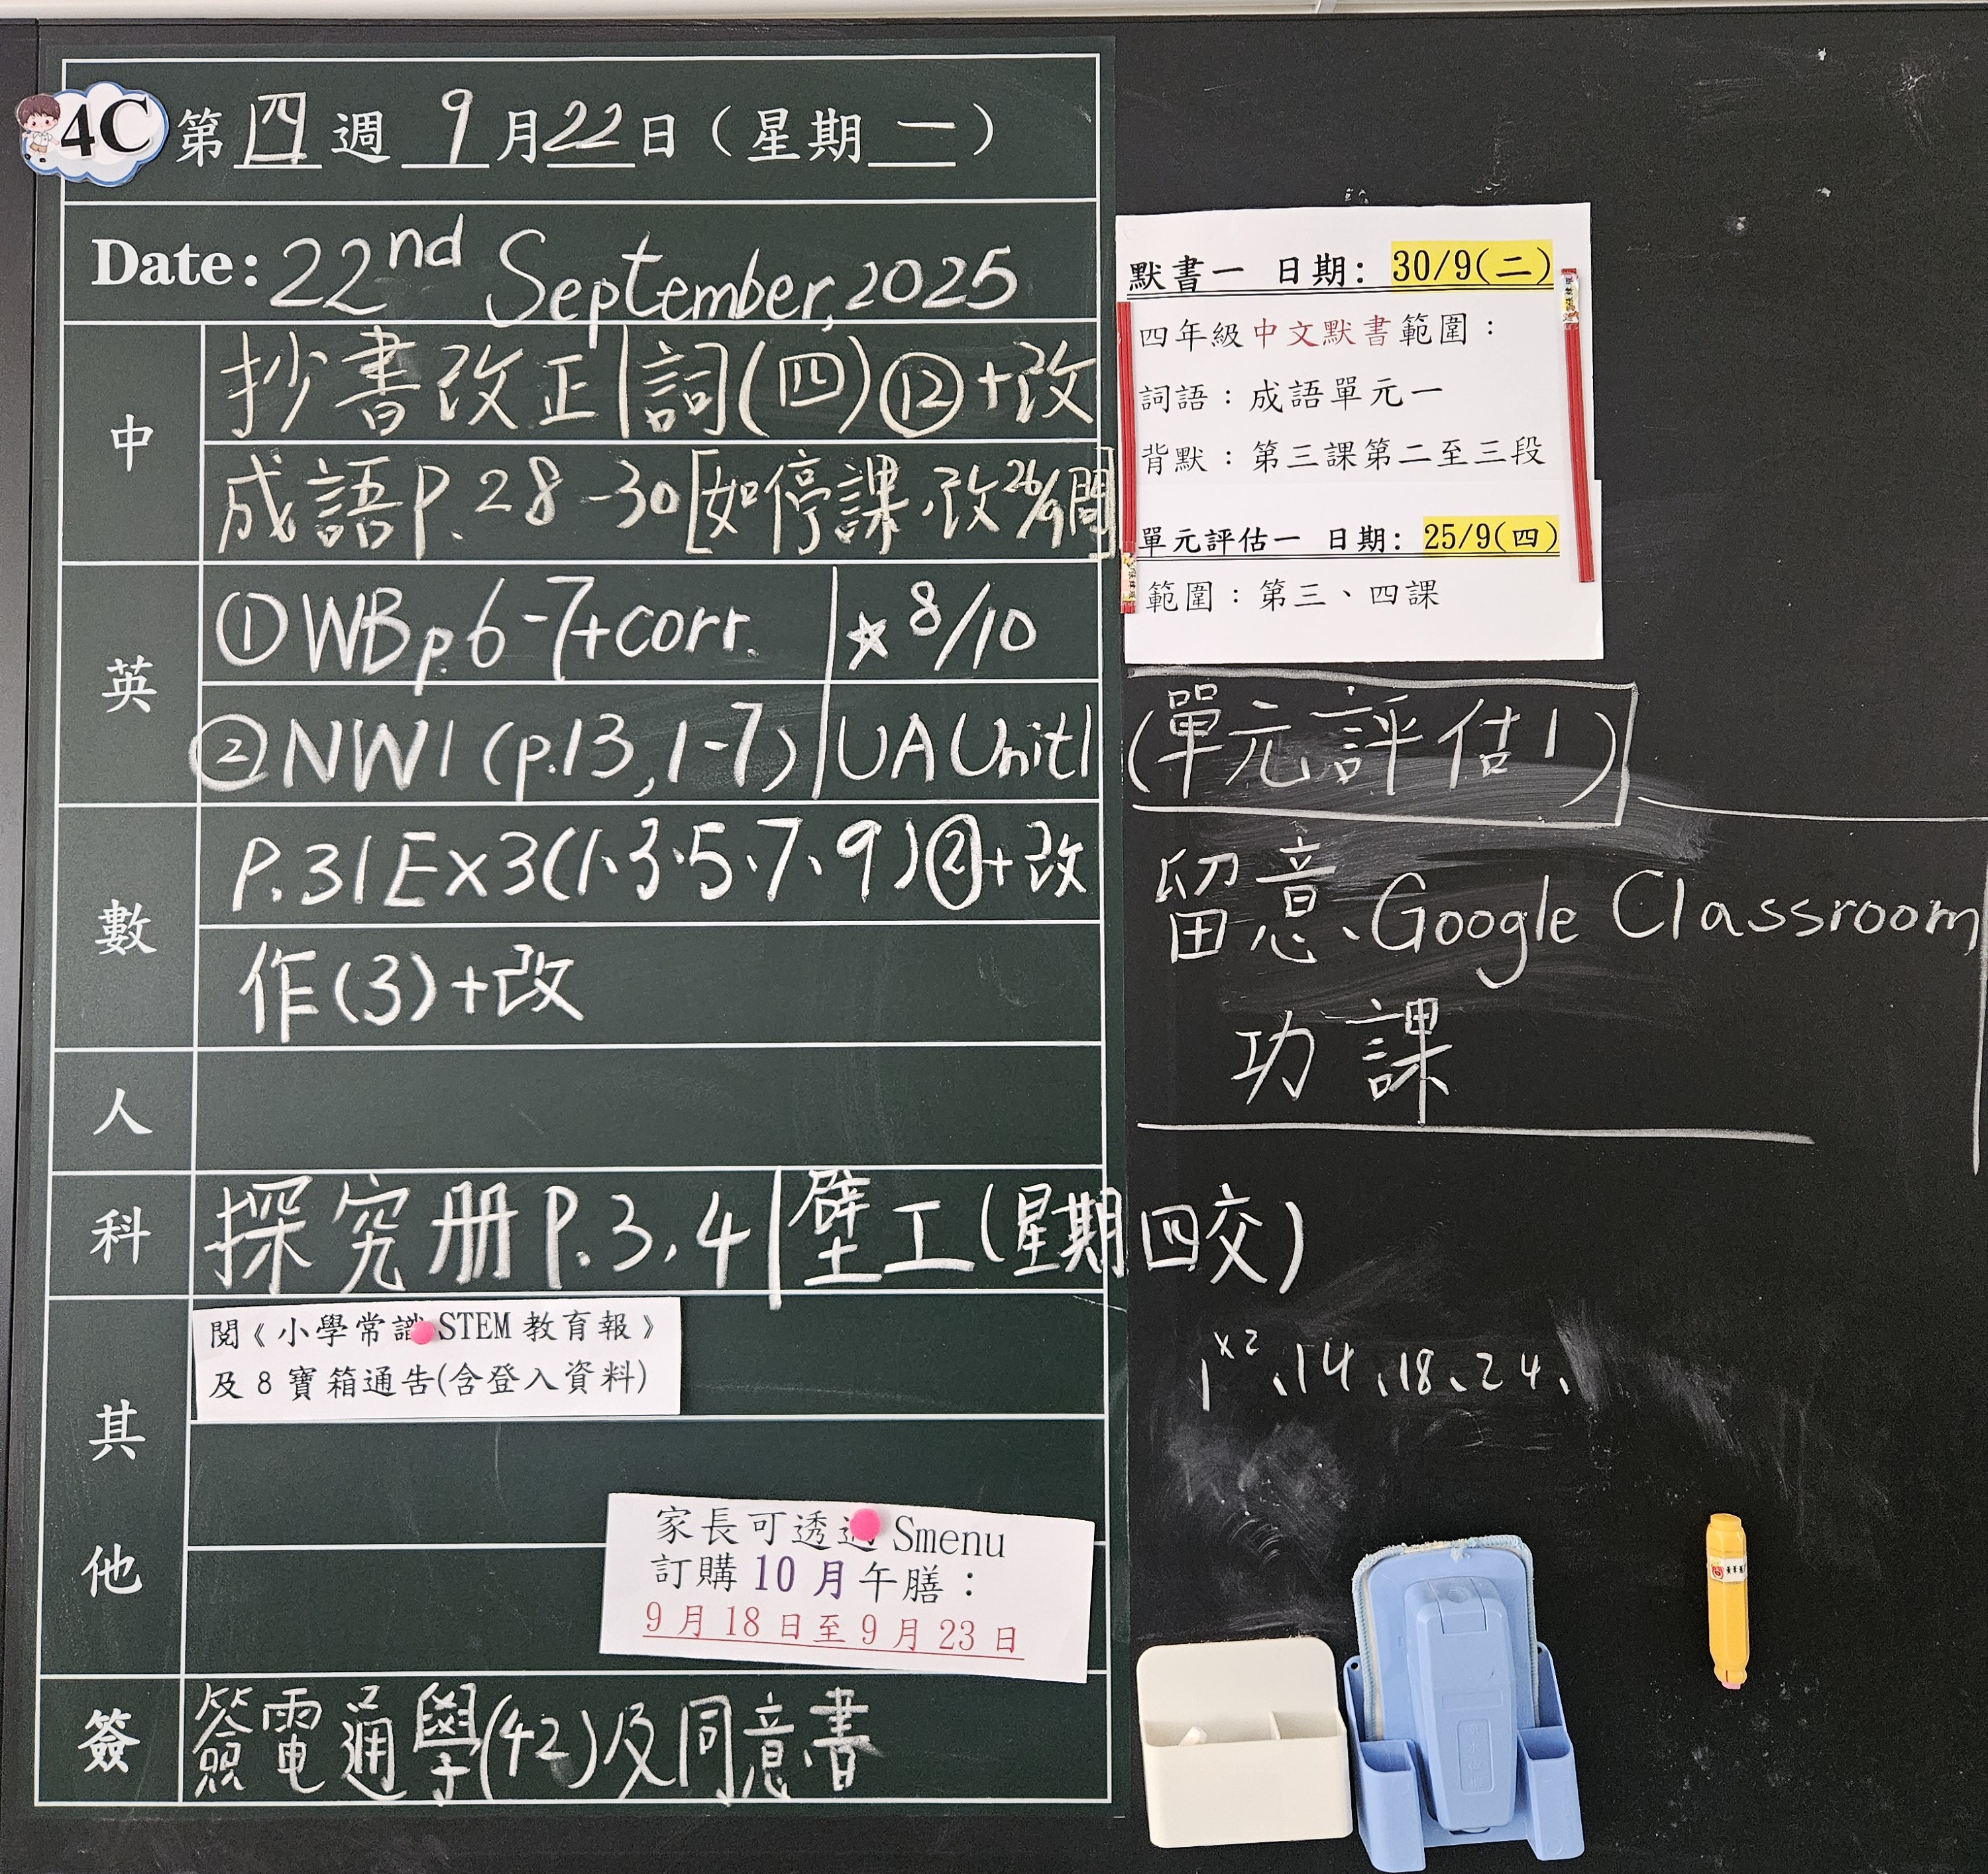 4C 第四週 9月22日(星期一)
Date: 22nd September, 2025
中
抄書改正|詞(四)⑫+改
成語P.28-30[如停課,改26/9間
英
①WB p.6-7+corr. |☆8/10
②NW1 (p.13, 1-7)|UA Unit1 (單元評估1)
數
P.31 Ex3(1、3、5、7、9)②+改
作(3)+改
人
科
探究册P.3,4|壁工(星期四交)
其他
閱《小學常識STEM教育報》
及8寶箱通告(含登入資料)
家長可透過Smenu
訂購10月午膳:
9月18日至9月23日
簽
簽電通學(42)及同意書
默書一 日期: 30/9(二)
四年級中文默書範圍:
詞語:成語單元一
背默:第三課第二至三段
單元評估一 日期: 25/9(四)
範圍:第三、四課
留意、Google Classroom
功課
1x2、14、18、24、